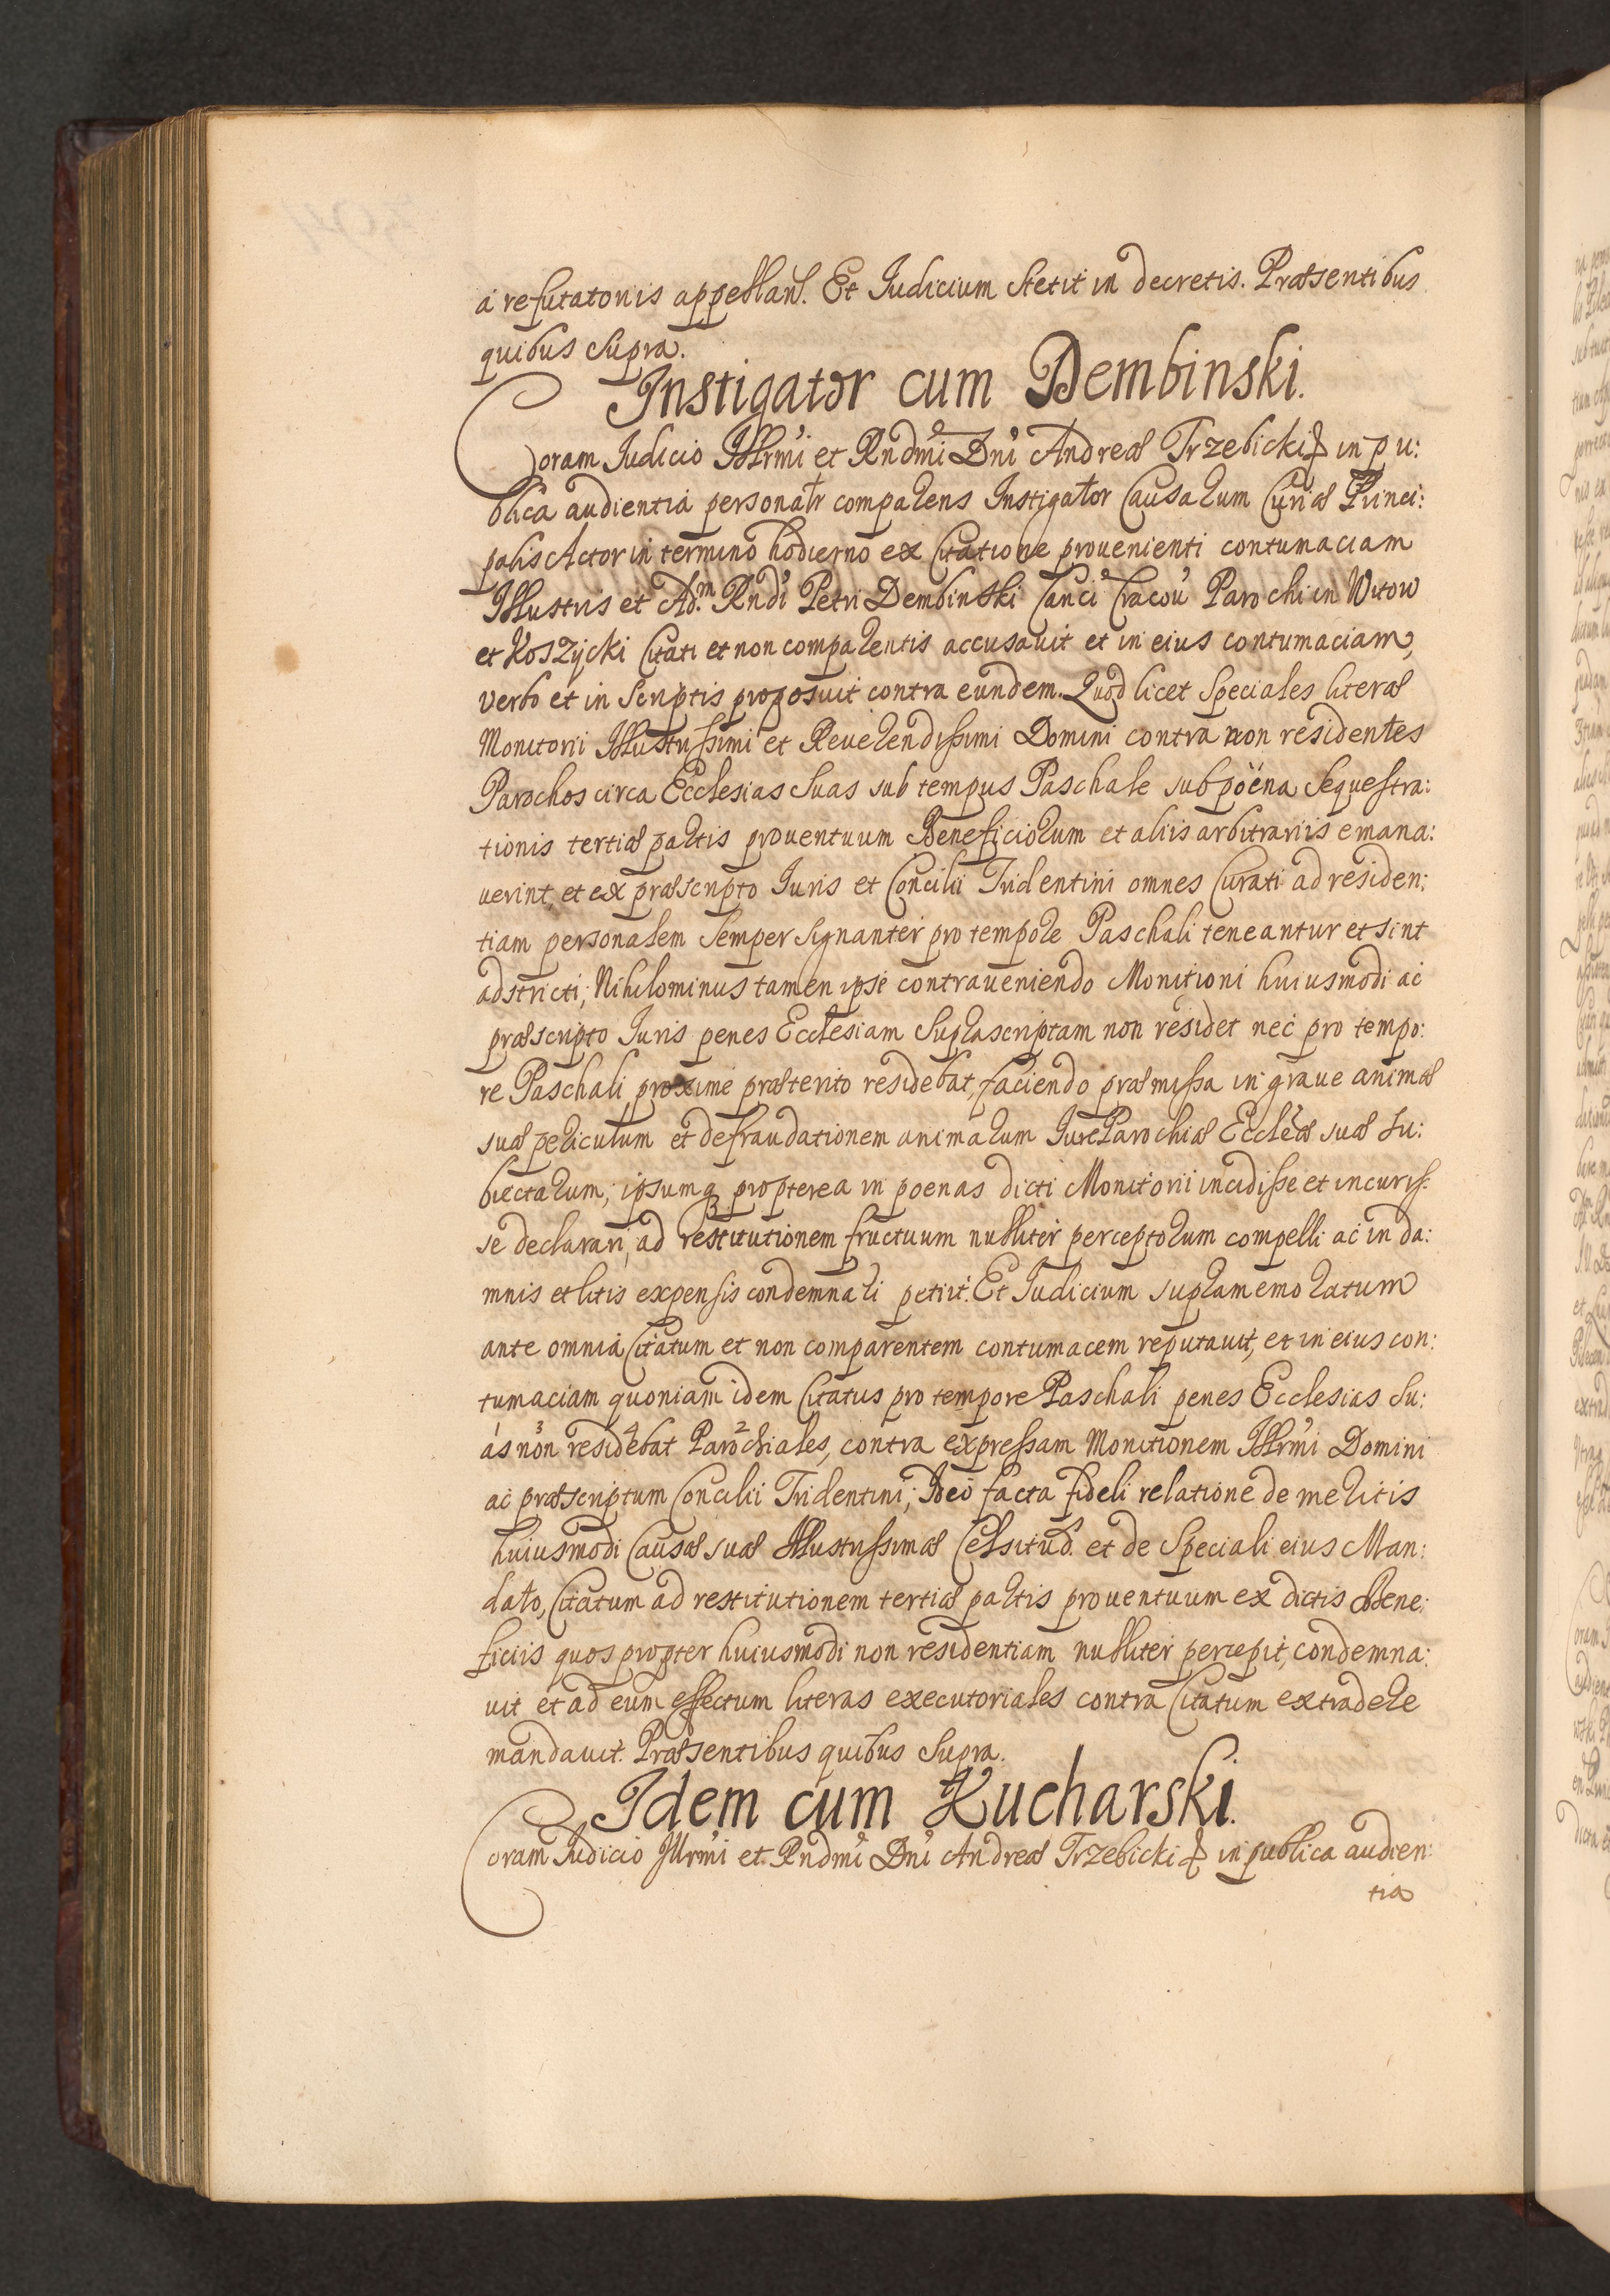 a refutatonis appellans. Et Judicium stetit in decretis. Præsentibus
quibus supra.
Instigator cum Dembinski.
Coram Judicio Illrmi et Rndmi Dni Andreæ Trzebicki & in pu:
blica audientia personatr comparens Instigator Causarum Curiæ Princi:
palis Actor in termino hodierno ex Citatione provenienti contumaciam
Illustris et Adm. Rndi Petri Dembinski Canci Cracov Parochi in Witow
et Koszycki Citati et non comparentis accusavit et in eius contumaciam,
verbo et in scriptis proposuit contra eundem. Quod licet speciales literæ
Monitorii Illustrissimi et Reverendissimi Domini contra non residentes
Parochos circa Ecclesias suas sub tempus Paschale sub pöena sequestra:
tionis tertiæ partis proventuum Beneficiorum et aliis arbitrariis emana:
verint, et ex præscripto Juris et Concilii Tridentini omnes Curati ad residen:
tiam personalem semper signanter pro tempore Paschali teneantur et sint
adstricti; Nihilominus tamen ipse contraveniendo Monitioni huiusmodi ac
præscripto Juris penes Ecclesiam suprascriptam non residet nec pro tempo:
re Paschali proxime præterito residebat, faciendo præmissa in grave animæ
suæ periculum et defraudationem animarum Jure Parochiæ Ecclæ suæ su:
biectarum; ipsumq propterea in poenas dicti Monitorii incidisse et incuris:
se declarari, ad restitutionem fructuum nulliter perceptorum compelli ac in da:
mnis et litis expensis condemnari petiit. Et Judicium supramemoratum
ante omnia Citatum et non comparentem contumacem reputavit, et in eius con:
tumaciam quoniam idem Citatus pro tempore Paschali penes Ecclesias su:
as non residebat Parochiales, contra expressam Monitionem Illrmi Domini
ac præscriptum Concilii Tridentini; Ideo facta fideli relatione de meritis
huiusmodi Causæ suæ Illustrissimæ Celsitud. et de speciali eius Man:
dato, Citatum ad restitutionem tertiæ partis proventuum ex dictis Bene:
ficiis quos propter huiusmodi non residentiam nulliter percepit, condemna:
vit et ad eum effectum literas executoriales contra Citatum extradere
mandavit. Præsentibus quibus supra.
Idem cum Kucharski.
Coram Judicio Illrmi et Rndmi Dni Andreæ Trzebicki & in publica audien:
tia